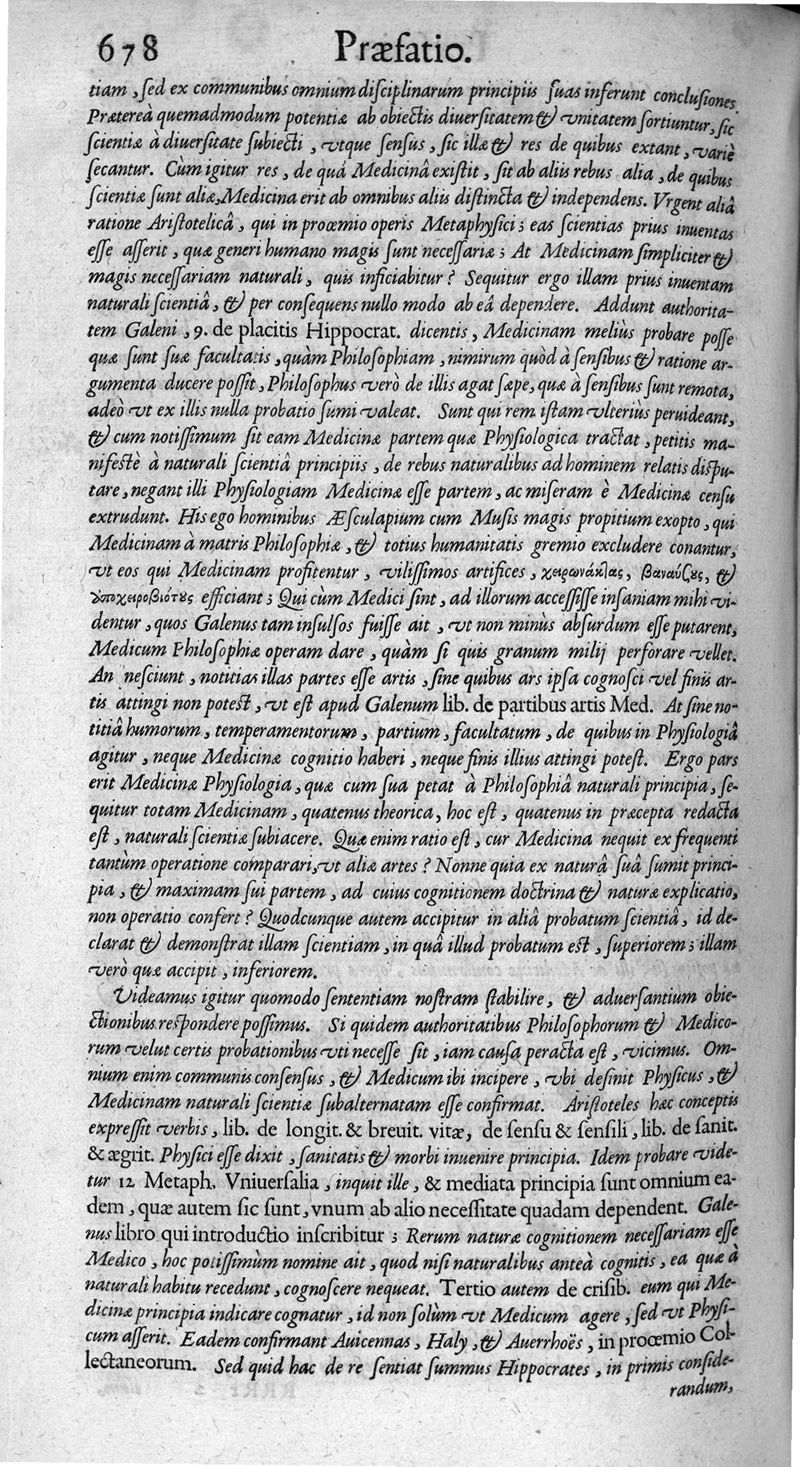 678 Præfatio.
tiam, ſed ex communibus omnium diſciplinarum principiis ſuas inferunt concluſiones.
Prætereà quemadmodum potentiæ ab obiectis diuerſitatem & vnitatem ſortiuntur, ſic
ſcientiæ à diuerſitate ſubiecti, vtque ſenſus, ſic illæ & res de quibus extant, variè
ſecantur. Cùm igitur res, de quâ Medicinâ exiſtit, ſit ab aliis rebus alia, de quibus
ſcientiæ ſunt aliæ, Medicina erit ab omnibus aliis diſtincta & independens. Vrgent aliâ
ratione Ariſtotelicâ, qui in proœmio operis Metaphyſici; eas ſcientias prius inuentas
eſſe aſſerit, quæ generi humano magis ſunt neceſſariæ; At Medicinam ſimpliciter &
magis neceſſariam naturali, quis inficiabitur? Sequitur ergo illam prius inuentam
naturali ſcientiâ, & per conſequens nullo modo ab eâ dependere. Addunt authorita-
tem Galeni, 9. de placitis Hippocrat. dicentis, Medicinam meliùs probare poſſe
quæ ſunt ſuæ facultatis, quàm Philoſophiam, nimirum quòd à ſenſibus & ratione ar-
gumenta ducere poſſit, Philoſophus verò de illis agat ſæpe, quæ à ſenſibus ſunt remota,
adeò vt ex illis nulla probatio ſumi valeat. Sunt qui rem iſtam vlteriùs peruideant,
& cum notiſſimum ſit eam Medicinæ partem quæ Phyſiologica tractat, petitis ma-
nifeſtè à naturali ſcientiâ principiis, de rebus naturalibus ad hominem relatis diſpu-
tare, negant illi Phyſiologiam Medicinæ eſſe partem, ac miſeram è Medicinæ cenſu
extrudunt. His ego hominibus Æſculapium cum Muſis magis propitium exopto, qui
Medicinam à matris Philoſophiæ, & totius humanitatis gremio excludere conantur,
vt eos qui Medicinam profitentur, viliſſimos artifices, χειρωνάκλας, βαναύζους, &
ὑποχειροβιότους efficiant; Qui cùm Medici ſint, ad illorum acceſſiſſe inſaniam mihi vi-
dentur, quos Galenus tam inſulſos fuiſſe ait, vt non minùs abſurdum eſſe putarent,
Medicum Philoſophiæ operam dare, quàm ſi quis granum milij perforare vellet.
An neſciunt, notitias illas partes eſſe artis, ſine quibus ars ipſa cognoſci vel finis ar-
tis attingi non poteſt, vt eſt apud Galenum lib. de partibus artis Med. At ſine no-
titiâ humorum, temperamentorum, partium, facultatum, de quibus in Phyſiologiâ
agitur, neque Medicinæ cognitio haberi, neque finis illius attingi poteſt. Ergo pars
erit Medicinæ Phyſiologia, quæ cum ſua petat à Philoſophiâ naturali principia, ſe-
quitur totam Medicinam, quatenus theorica, hoc eſt, quatenus in præcepta redacta
eſt, naturali ſcientiæ ſubiacere. Quæ enim ratio eſt, cur Medicina nequit ex frequenti
tantùm operatione comparari, vt aliæ artes? Nonne quia ex naturâ ſuâ ſumit princi-
pia, & maximam ſui partem, ad cuius cognitionem doctrina & naturæ explicatio,
non operatio confert? Quodcunque autem accipitur in aliâ probatum ſcientiâ, id de-
clarat & demonſtrat illam ſcientiam, in quâ illud probatum eſt, ſuperiorem; illam
verò quæ accipit, inferiorem.
Videamus igitur quomodo ſententiam noſtram ſtabilire, & aduerſantium obie-
ctionibus reſpondere poſſimus. Si quidem authoritatibus Philoſophorum & Medico-
rum velut certis probationibus vti neceſſe ſit, iam cauſa peracta eſt, vicimus. Om-
nium enim communis conſenſus, & Medicum ibi incipere, vbi deſinit Phyſicus, &
Medicinam naturali ſcientiæ ſubalternatam eſſe confirmat. Ariſtoteles hæc conceptis
expreſſit verbis, lib. de longit. & breuit. vitæ, de ſenſu & ſenſili, lib. de ſanit.
& ægrit. Phyſici eſſe dixit, ſanitatis & morbi inuenire principia. Idem probare vide-
tur 12 Metaph. Vniuerſalia, inquit ille, & mediata principia ſunt omnium ea-
dem, quæ autem ſic ſunt, vnum ab alio neceſſitate quadam dependent. Gale-
nus libro qui introductio inſcribitur; Rerum naturæ cognitionem neceſſariam eſſe
Medico, hoc potiſſimùm nomine ait, quod niſi naturalibus anteà cognitis, ea quæ à
naturali habitu recedunt, cognoſcere nequeat. Tertio autem de criſib. eum qui Me-
dicinæ principia indicare cognatur, id non ſolùm vt Medicum agere, ſed vt Phyſi-
cum aſſerit. Eadem confirmant Auicennas, Haly, & Auerrhoës, in proœmio Col-
lectaneorum. Sed quid hac de re ſentiat ſummus Hippocrates, in primis conſide-
randum,